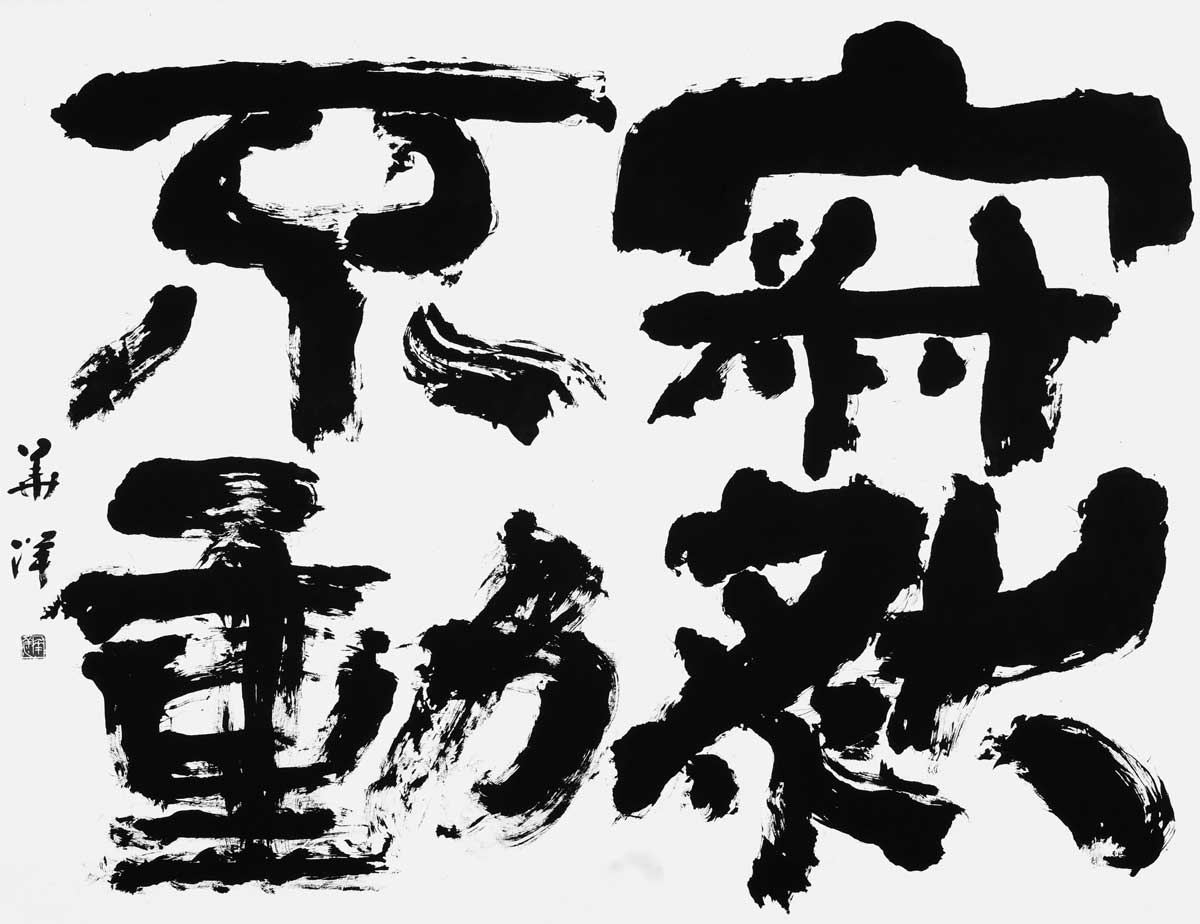 寂然
不動
華洋